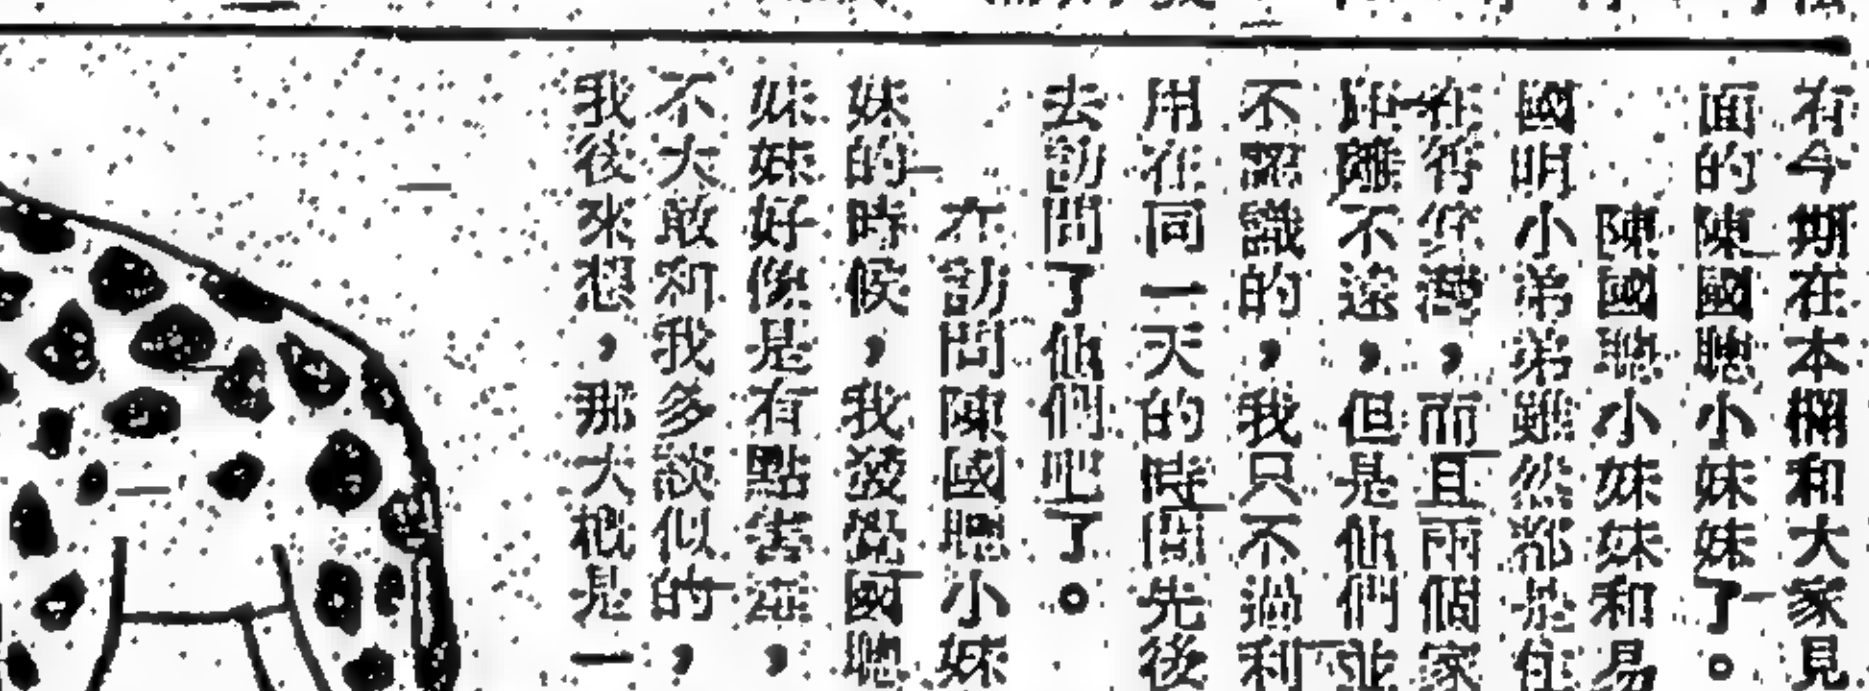 有今期在本欄和大家見
面的陳國聰小妹妹了。
陳國聰小妹妹和易
國明小弟弟雖然都是住
在荷灣，而且兩個家
距離不遠，但是他們並
不認識的，我只不過利
用在同一天的時間先後
去訪問了他們吧了。
在訪問陳國聰小妹
妹的時候，我發覺國聰
妹妹好像是有點害羞，
不大敢和我多談似的，
我後來想，那大概是一